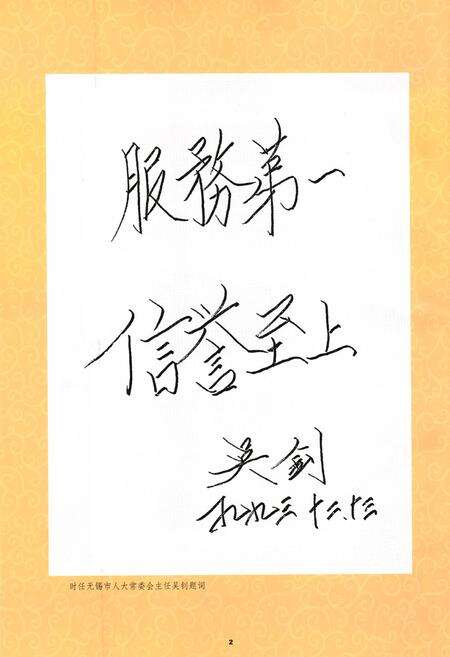 服務第一
信誉至上
吴钊
一九九三 十二.十三
时任无锡市人大常委会主任吴钊题词
2